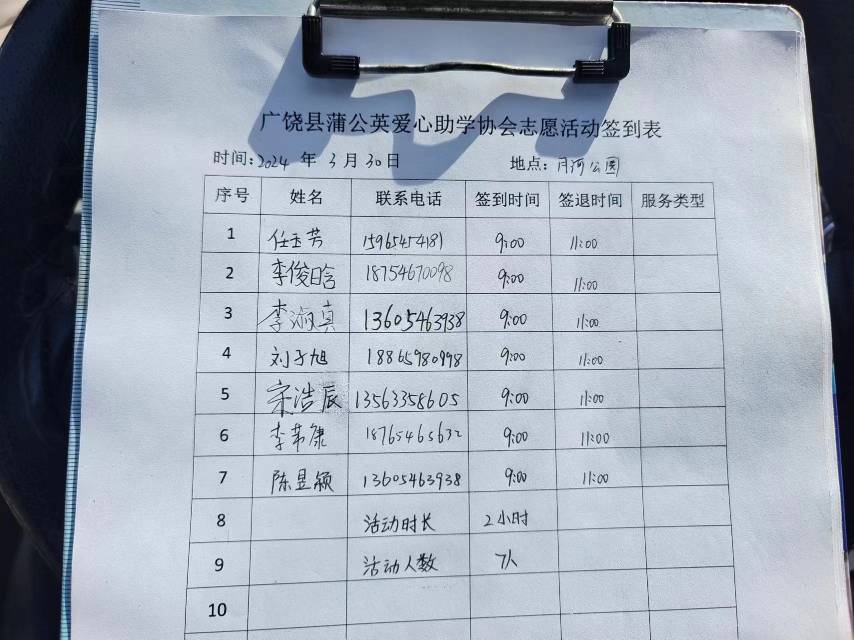 广饶县蒲公英爱心助学协会志愿活动签到表
时间:2024 年 3 月 30 日 地点: 月河公园
序号 姓名 联系电话 签到时间 签退时间 服务类型
1 任玉芳 15965454181 9:00 11:00
2 李俊晗 18754670098 9:00 11:00
3 李淑真 13605463938 9:00 11:00
4 刘子旭 18865980998 9:00 11:00
5 宋浩辰 13563358605 9:00 11:00
6 李第康 18765465632 9:00 11:00
7 陈昱颖 13605463938 9:00 11:00
8 活动时长 2小时
9 活动人数 7人
10